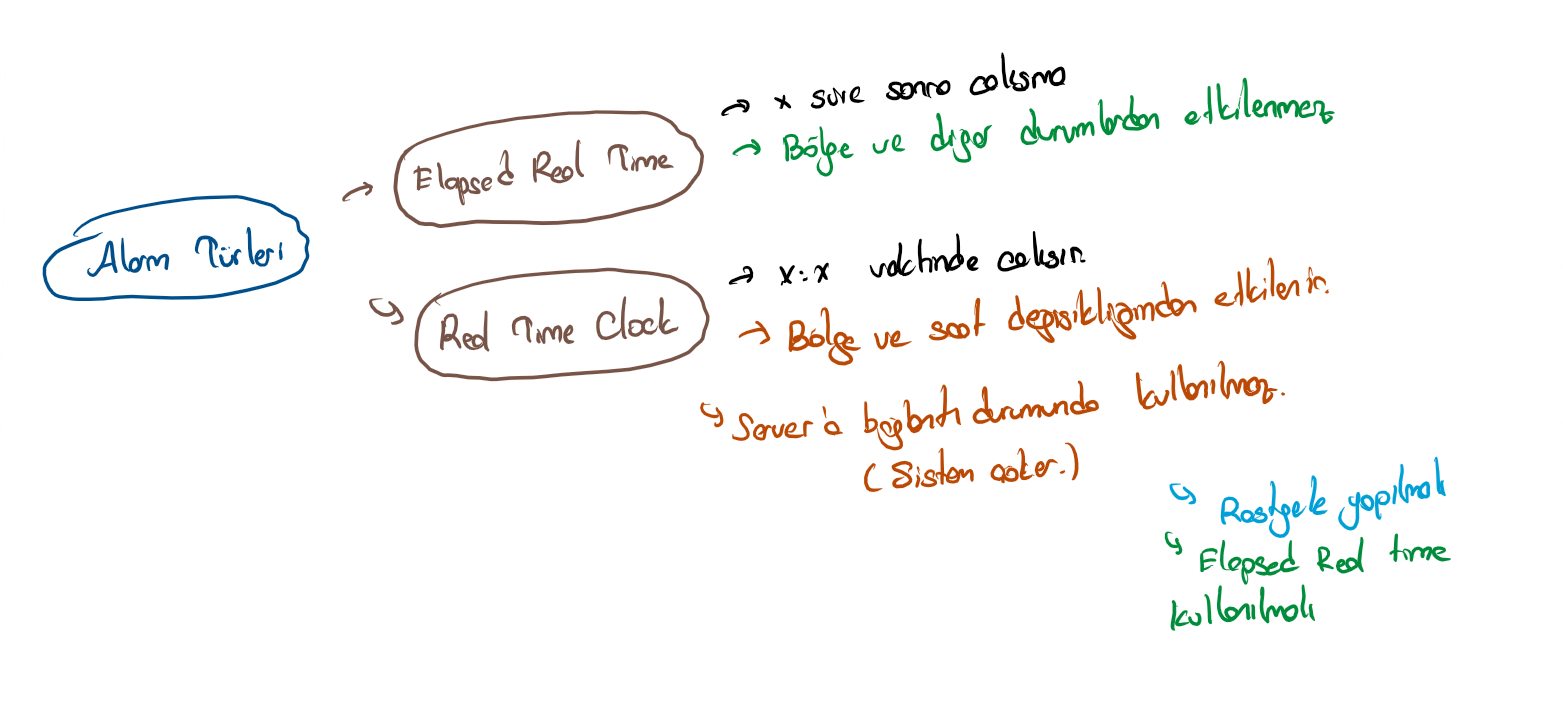 Alarm Türleri
→ Elapsed Real Time
→ x süre sonra calısma
→ Bölge ve diger durumlardan etkilenmez
↪ Real Time Clock
→ x:x vaktinde calısın
→ Bölge ve saat degısıklıgınden etkilenir.
↪ Server'a baglantı durumunda kullanılmaz.
(Sistem coker.)
↪ Rastgele yapılmalı
↪ Elapsed Real time
kullanılmalı